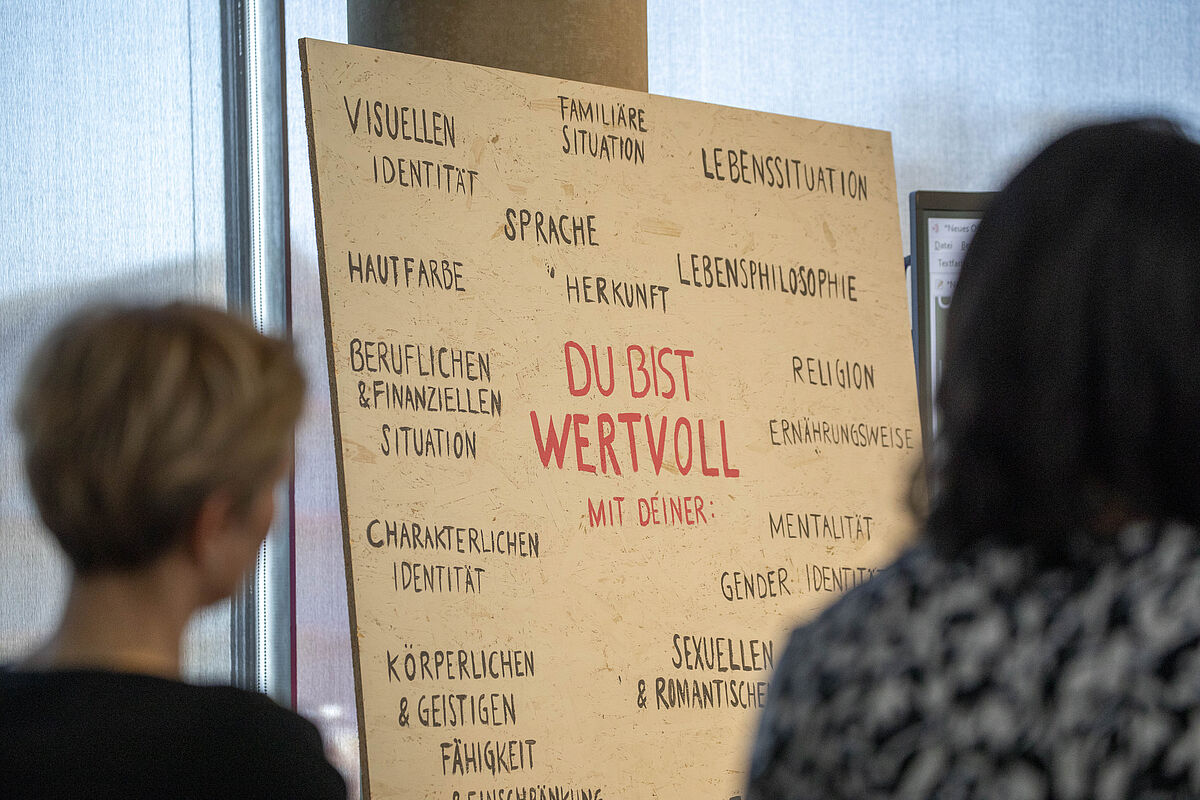 VISUELLEN
IDENTITÄT
FAMILIÄRE
SITUATION
LEBENSSITUATION
SPRACHE
HAUTFARBE
HERKUNFT
LEBENSPHILOSOPHIE
BERUFLICHEN
& FINANZIELLEN
SITUATION
DU BIST
WERTVOLL
MIT DEINER:
RELIGION
ERNÄHRUNGSWEISE
CHARAKTERLICHEN
IDENTITÄT
MENTALITÄT
GENDER IDENTITÄT
KÖRPERLICHEN
& GEISTIGEN
FÄHIGKEIT
& EINSCHRÄNKUNG
SEXUELLEN
& ROMANTISCHE
"Neues
Datei